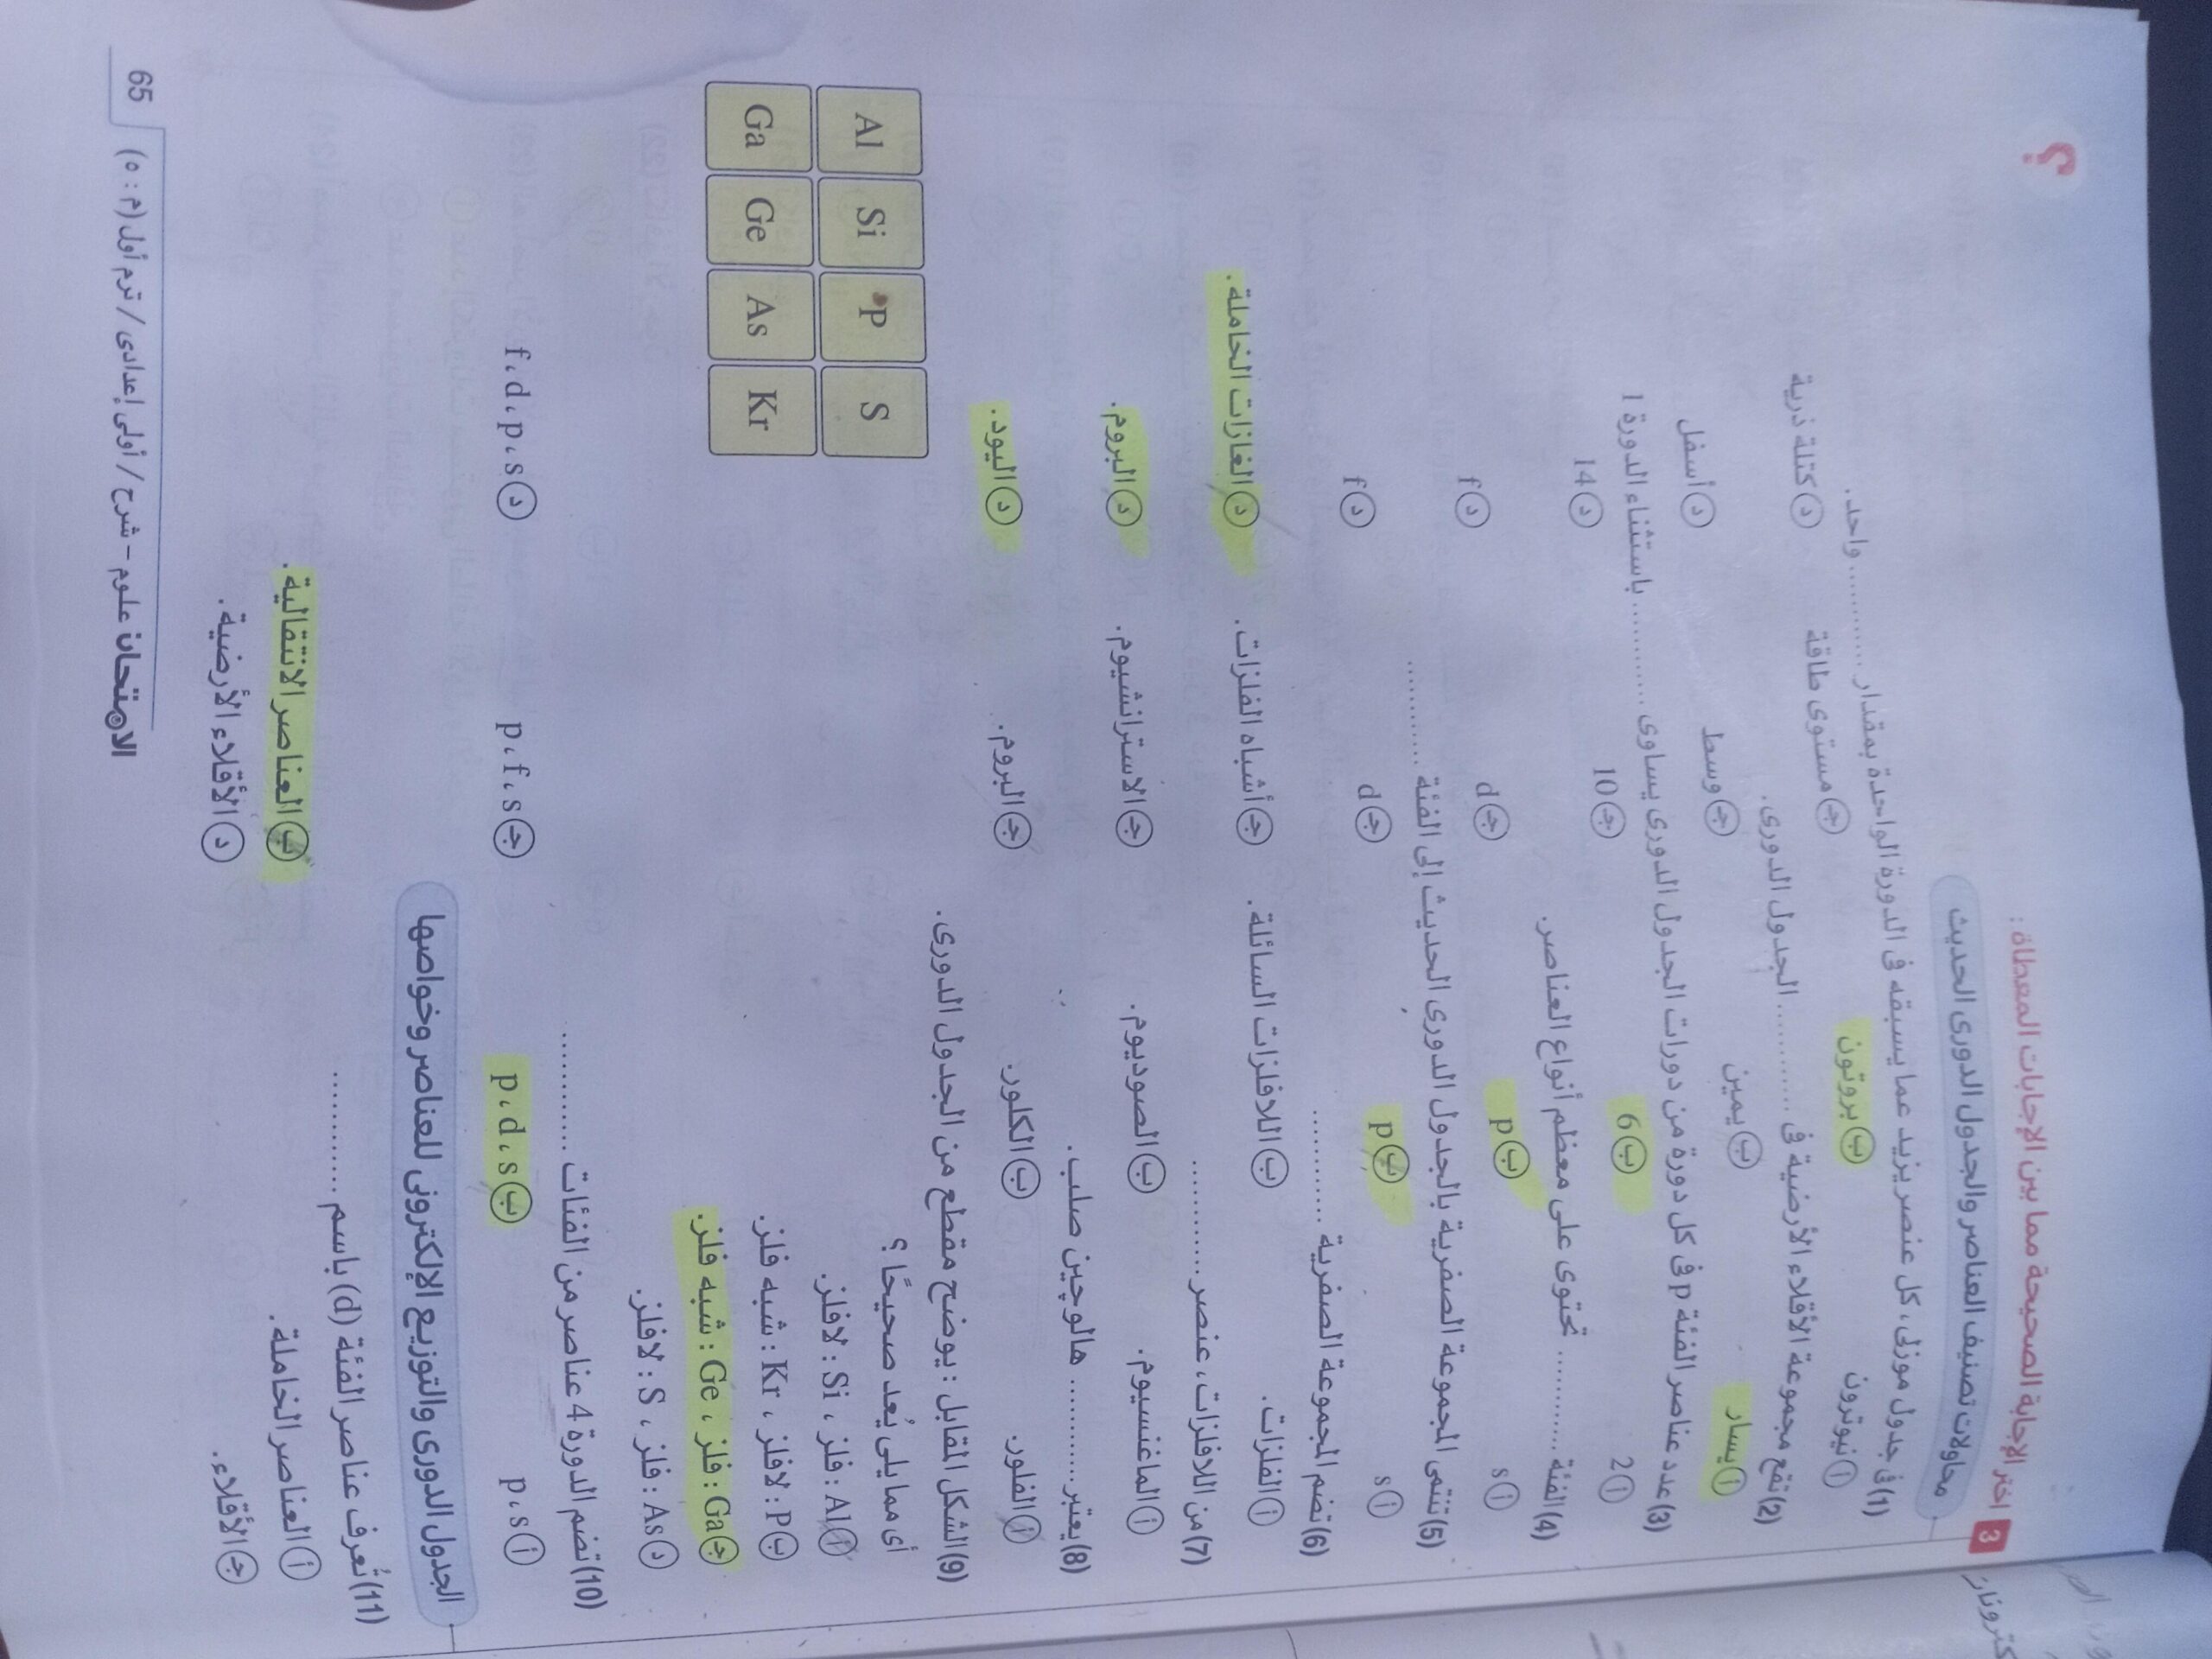 ؟
3 اختر الإجابة الصحيحة مما بين الإجابات المعطاة:
محاولات تصنيف العناصر والجدول الدورى الحديث
(1) فى جدول موزلى، كل عنصر يزيد عما يسبقه فى الدورة الواحدة بمقدار .......... واحد.
أ نيوترون ب بروتون ج مستوى طاقة د كتلة ذرية
(2) تقع مجموعة الأقلاء الأرضية فى .......... الجدول الدورى.
أ يسار ب يمين ج وسط د أسفل
(3) عدد عناصر الفئة p فى كل دورة من دورات الجدول الدورى يساوى .......... باستثناء الدورة 1
أ 2 ب 6 ج 10 د 14
(4) الفئة .......... تحتوى على معظم أنواع العناصر.
أ s ب p ج d د f
(5) تنتمى المجموعة الصفرية بالجدول الدورى الحديث إلى الفئة ..........
أ s ب p ج d د f
(6) تضم المجموعة الصفرية ..........
أ الفلزات. ب اللافلزات السائلة. ج أشباه الفلزات. د الغازات الخاملة.
(7) من اللافلزات، عنصر ..........
أ الماغنسيوم. ب الصوديوم. ج الاسترانشيوم. د البروم.
(8) يعتبر .......... هالوچين صلب.
أ الفلور. ب الكلور. ج البروم. د اليود.
(9) الشكل المقابل : يوضح مقطع من الجدول الدورى.
أى مما يلى يُعد صحيحًا ؟
أ Al : فلز ، Si : لافلز.
ب P : لافلز ، Kr : شبه فلز.
ج Ga : فلز ، Ge : شبه فلز.
د As : فلز ، S : لافلز.
Al Si P S
Ga Ge As Kr
(10) تضم الدورة 4 عناصر من الفئات ..........
أ s ، p ب s ، d ، p ج s ، f ، p د s ، p ، d ، f
الجدول الدورى والتوزيع الإلكترونى للعناصر وخواصها
(11) تُعرف عناصر الفئة (d) باسم ..........
أ العناصر الخاملة. ب العناصر الانتقالية.
ج الأقلاء. د الأقلاء الأرضية.
الامتحان علوم - شرح / أولى إعدادى / ترم أول (م : ٥) 65